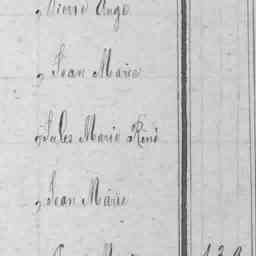 Pierre Ange
Jean Marie
Jules Marie René
Jean Marie